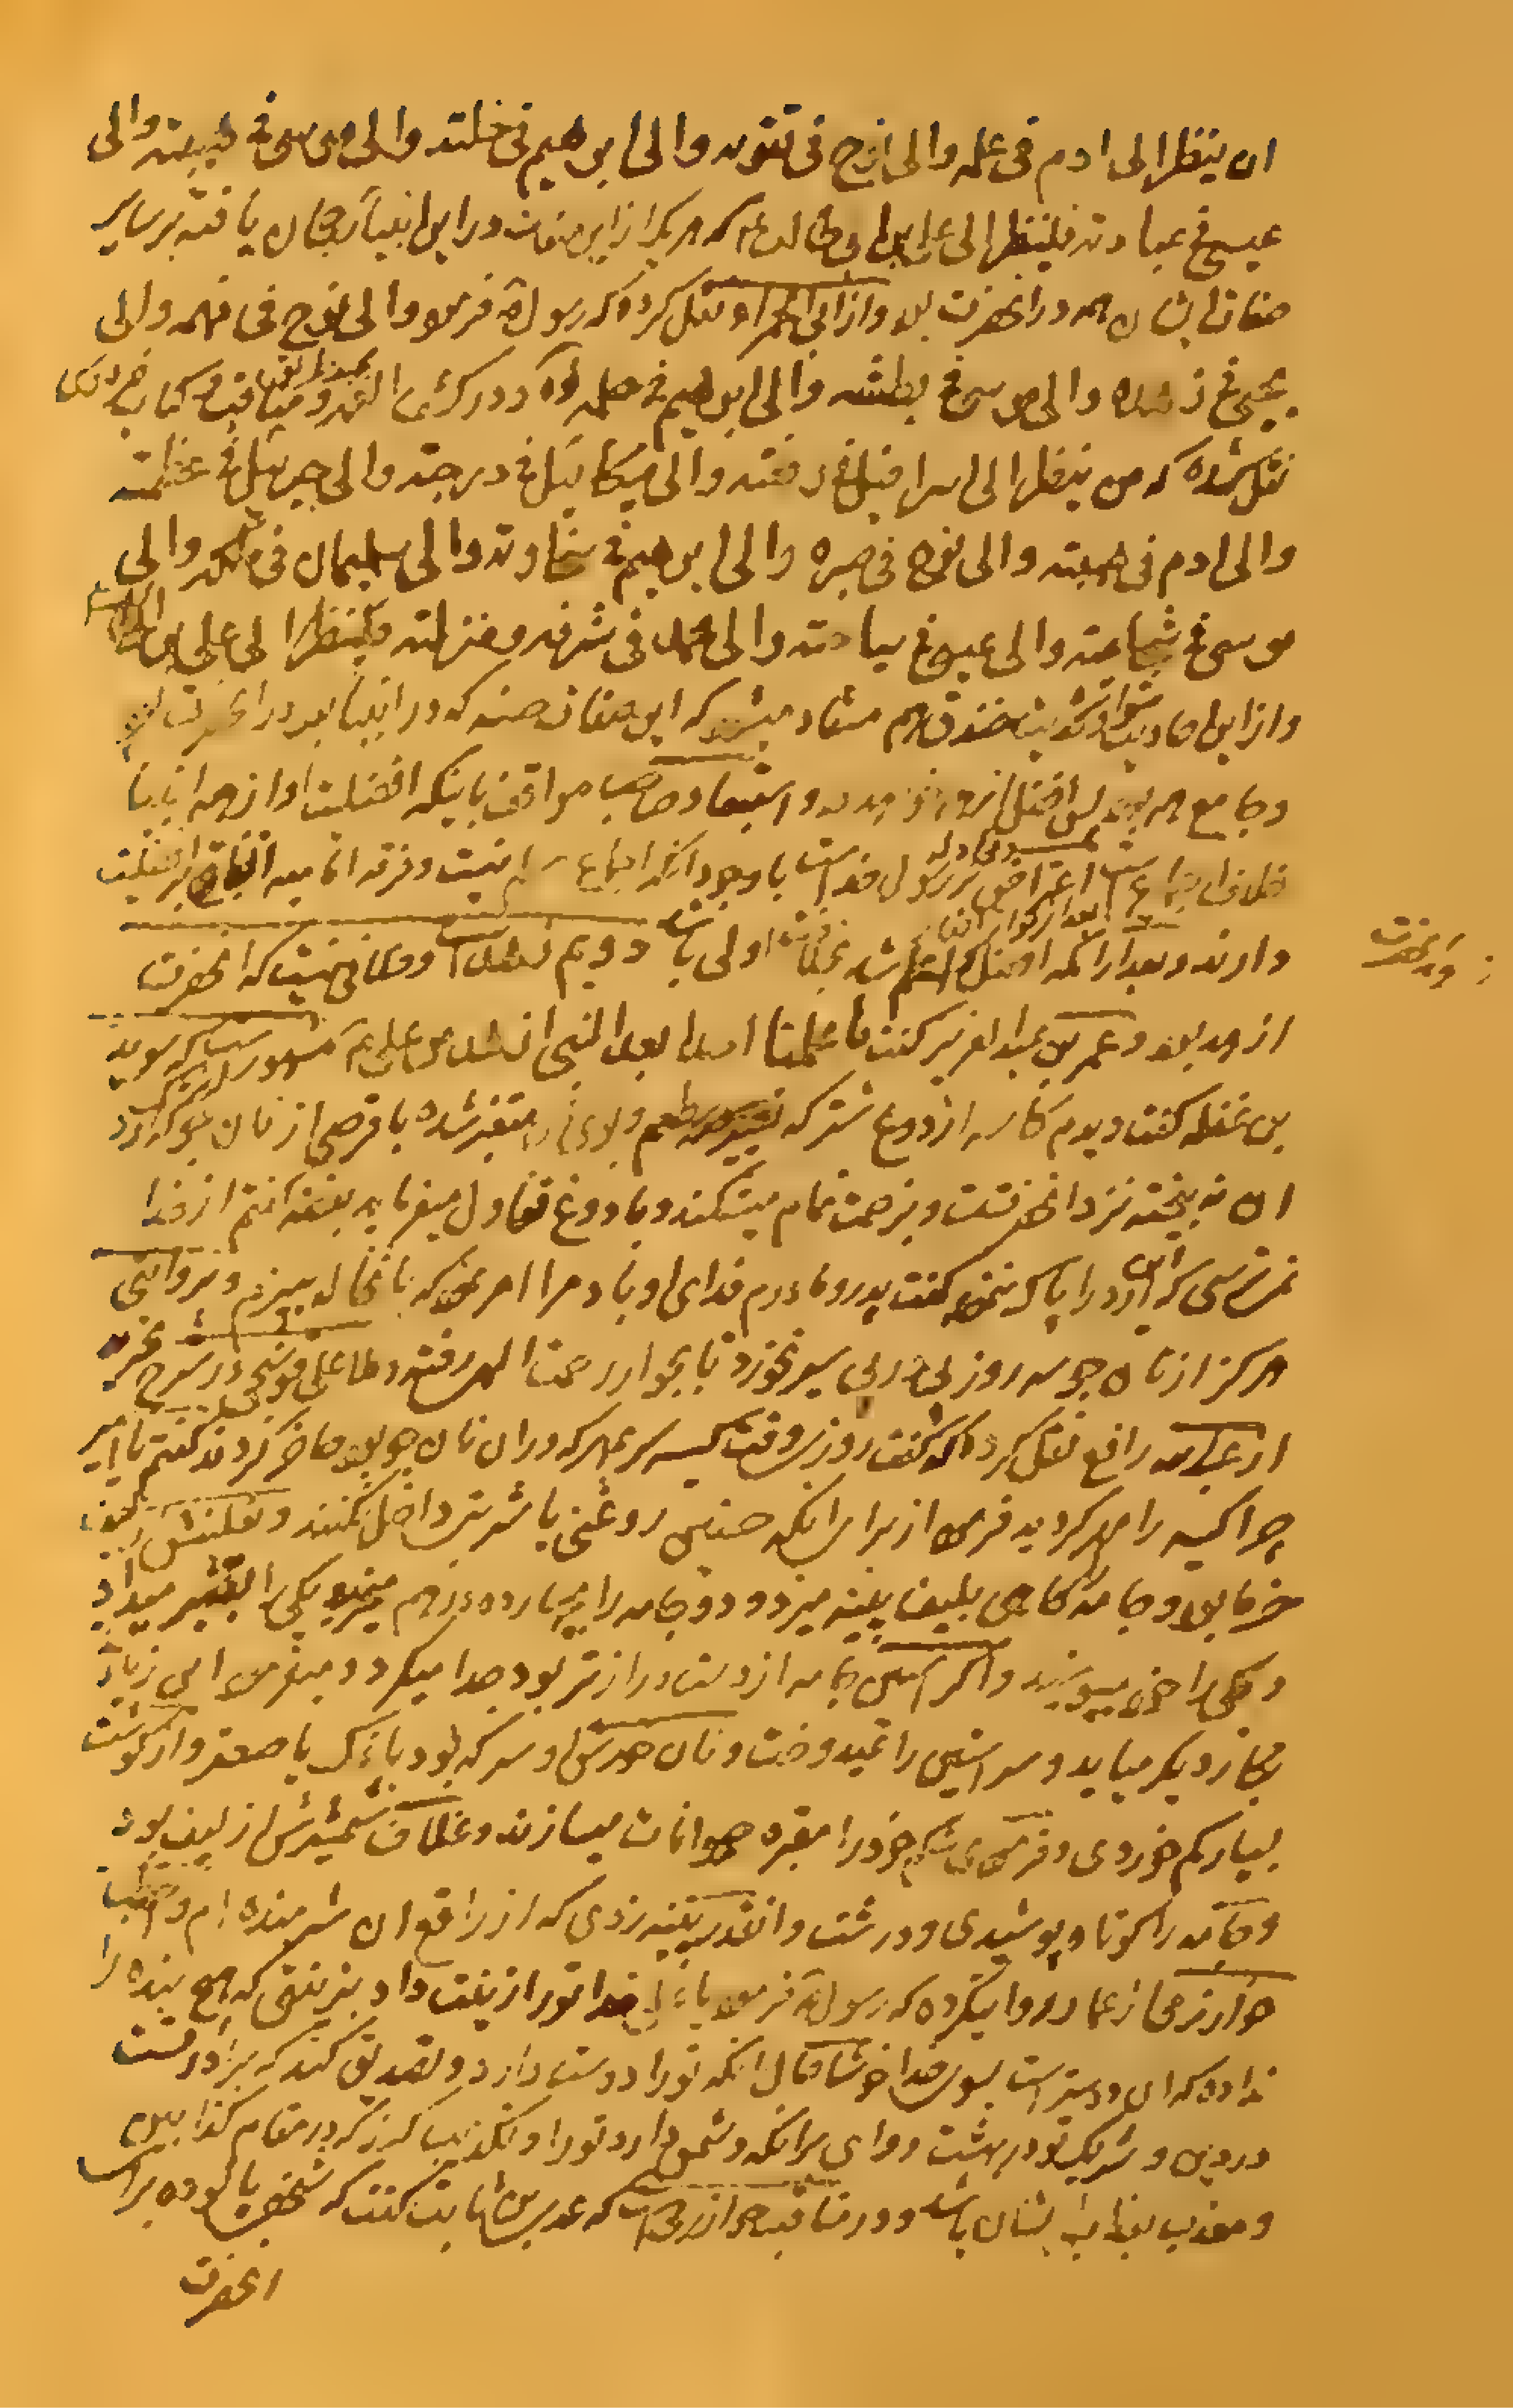 ان ینظر الی ادم فی علمه والی نوح فی تقویه والی ابرهیم فی خلته والی موسی فی هیبته والی
عیسی فی عبادته فلینظر الی علی بن ابی طالب که هر یک از این صفات در این انبیا رجحان یافته بر سایر
صفات ایشان همه در انحضرت بود و از ابی الحمرا و نقل کرده که رسول فرمود والی نوح فی فهمه والی
یحیی فی زهده والی موسی فی بطشه والی ابرهیم فی حلمه و در کشف الغمه و مناقب و کتاب فردوس
نقل شده که من ینظر الی اسرافیل فی رفعته والی میکائیل فی درجته والی جبرئیل فی عظمته
والی ادم فی هیبته والی نوح فی صبره والی ابرهیم فی سخاوته والی سلیمان فی ملکه والی
موسی فی شجاعته والی عیسی فی سیاحته والی محمد فی شرفه و منزلته فلینظر الی علی بن ابی طالب
و از این احادیث خندق هم مستفاد میشود که این صفات حسنه که در انبیا بود در انحضرت
و جامع همه بود پس افضل از همه و استبعاد صاحب مواقف باینکه افضلیت او از همه انبیا
خلاف اجماع است اعتراض بر رسول خداست با وجود آنکه اجماع نیست و فرقه امامیه اتفاق بر افضلیت
دارند و بعد از انکه افضل باشد بخلافت اولی باشد دویم زهد است و خلافی نیست که انحضرت
ازهد بود و عمر بن عبد العزیز گفت ما علمنا احدا بعد النبی ازهد من علی مشهور است که سوید
بن غفله گفت دیدم کاسه از دوغ شتر که طعم و بوی متغیر شده با قرصی از نان جو که ارد
ان نه بیخته نزد انحضرتست و بزحمت تمام میشکند و با دوغ تناول میفرماید بفضه گفتم از خدا
نمیترسی که این ارد را پاک نمیکنی گفت پدر و مادرم فدای او باد مرا امر نموده که با نخاله بپزم و بروایتی
هرگز از نان جو سه روز پی در پی سیر نخورد تا بجوار رحمت الهی رفته و ملا علی قوشچی در شرح تجرید
از عبدالله رافع نقل کرده که گفت روزی وقت کیسه سر بمهر که در ان نان جو بود حاضر کردند گفتم یا امیر
چرا کیسه را مهر کردید فرمود از برای انکه حسنین روغنی یا شربتی داخل نکنند و نعلینش از لیف
خرما بود و جامه گاهی بلیف پینه میزد و دو جامه را بچهارده درهم میخرید یکی را بقنبر میداد
و یکی را خود میپوشید و اگر استین جامه از دست درازتر بود جدا میکرد و میفرمود این زیاده
بکار دیگر میاید و سر استین را نمیدوخت و نان خورش او سرکه بود یا نمک یا صعتر و از گوشت
بسیار کم خوردی و فرمودی شکم خود را مقبره حیوانات میسازند و غلاف شمشیرش از لیف بود
و جامه را کوتاه پوشیدی و درشت و انقدر پینه زدی که از راقع ان شرمنده ام و خطیب
خوارزمی از عمار روایتکرده که رسول فرمود یا علی خدا تو را زینت داد بزینتی که هیچ بنده را
نداده که ان دوستر است بسوی خدا خوشا حال انکه تو را دوست دارد و تصدیق کند که برادر تست
در دین و شریک تو در بهشت و وای بر انکه دشمن دارد تو را و تکذیب کند که در مقام کذابین
و معذب بعذاب ایشان باشد و در مناقب خوارزمی است که عدی بن ثابت گفت که شخصی پالوده برای
انحضرت